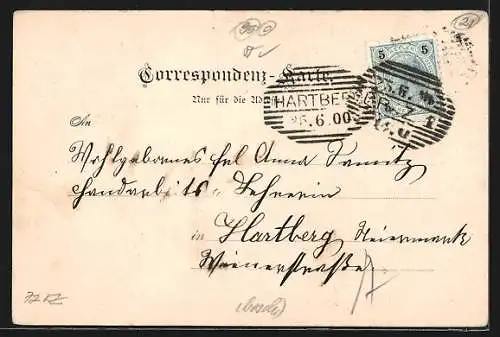 Correspondenz-Karte.
Nur für die Adresse
5 5
HARTBERG
25.6.00
An
Wohlgebornes Frl Anna
Handarbeits-Lehrerin
in Hartberg Steiermark
Wienerstraße